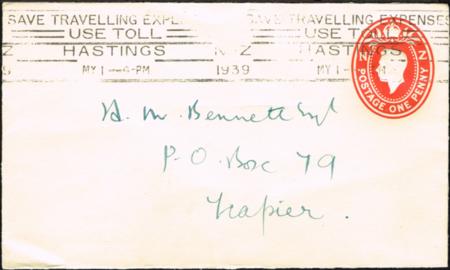 SAVE TRAVELLING EXPE SAVE TRAVELLING EXPENSES
USE TOLL USE TOLL
Z HASTINGS N Z HASTINGS
MY 1 — 4-PM 1939 MY 1 —
N Z
POSTAGE ONE PENNY
H. M. Bennett Esq
P. O. Box 79
Napier.